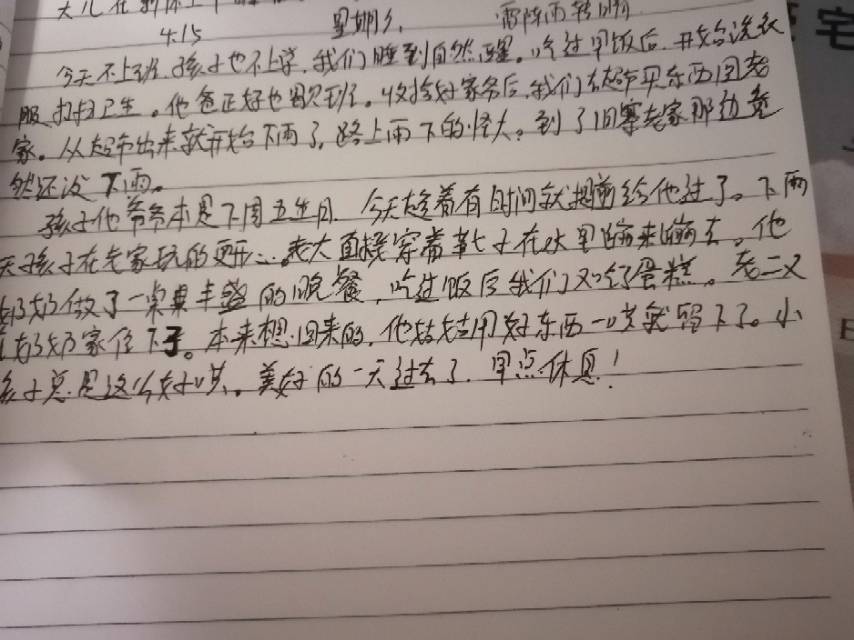 4.15 星期六 雷阵雨转阴
今天不上班,孩子也不上学,我们睡到自然醒。吃过早饭后,开始洗衣
服扫扫卫生。他爸正好也图班。收拾好家务后,我们去超市买东西回老
家。从超市出来就开始下雨了,路上雨下的怪大。到了回寨老家那边竟
然还没下雨。
孩子他爷爷本是下周五生日,今天趁着有时间就提前给他过了。下雨
天孩子在老家玩的更开心。老大直接穿着鞋子在水里蹦来蹦去。他
奶奶做了一桌丰盛的晚餐,吃过饭后我们又吃了蛋糕。老二又
在奶奶家住下了。本来想回来的,他姑姑用好东西一哄就留下了。小
孩子总是这么好哄。美好的一天过去了,早点休息!
宅